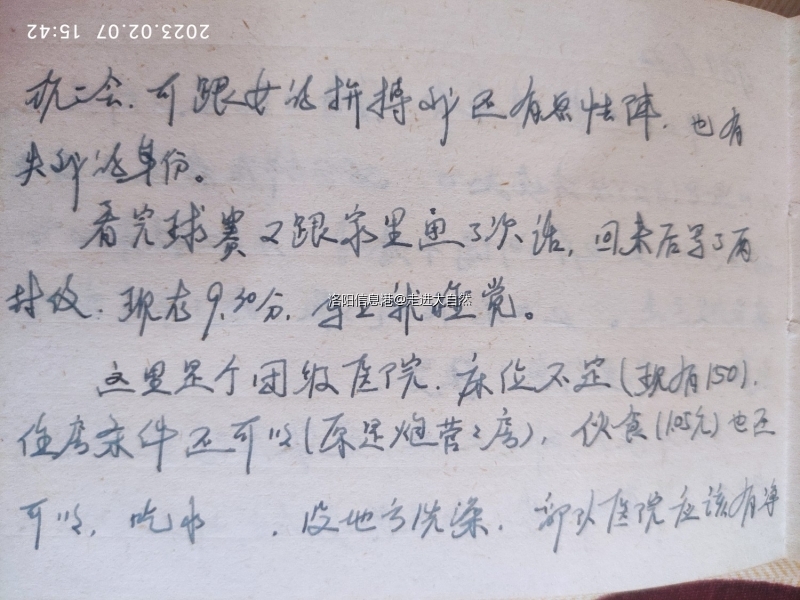 2023.02.07 15:42
机会.可跟女 拼搏 还有点怯阵.也有
失 身份。
看完球赛又跟家里通了次话,回来后写了两
封信.现在9.30分. 睡觉。
洛阳信息港@走进大自然
这里是个团级医院.床位不定(现有150).
住房条件还可以(原是炮营之房),伙食(1.05元)也还
可以,吃水 .没地方洗澡.部队医院应该有净